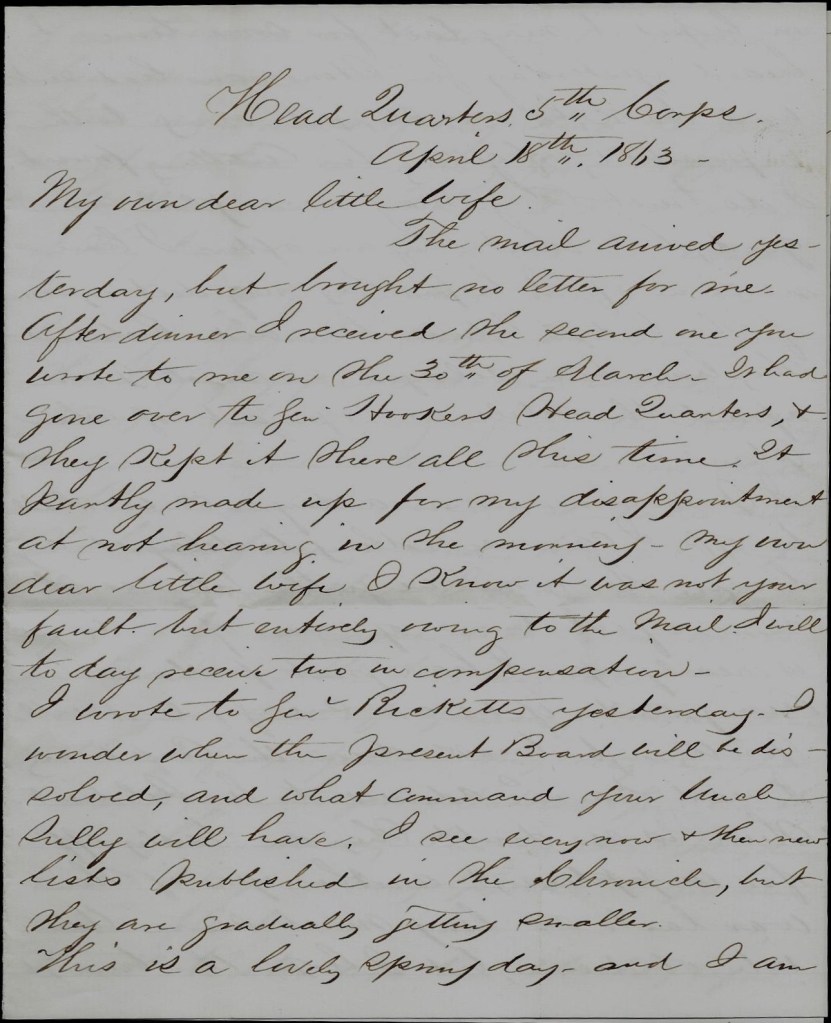 Head Quarters. 5th Corps.
April 18th. 1863 -
My own dear little wife.
The mail arived yes-
terday, but brought no letter for me.
After dinner I received the second one you
wrote to me on the 30th of March - It had
gone over to Genl Hookers Head Quarters, &
they kept it there all this time. It
partly made up for my disappointment
at not hearing in the morning - My own
dear little wife I know it was not your
fault. but entirely owing to the Mail. I will
to day receive two in compensation -
I wrote to Genl Ricketts yesterday - I
wonder when the present Board will be dis-
solved, and what command your Uncle
Sully will have. I see every now & then new
lists published in the Chronicle, but
they are gradually getting smaller.
This is a lovely spring day - and I am